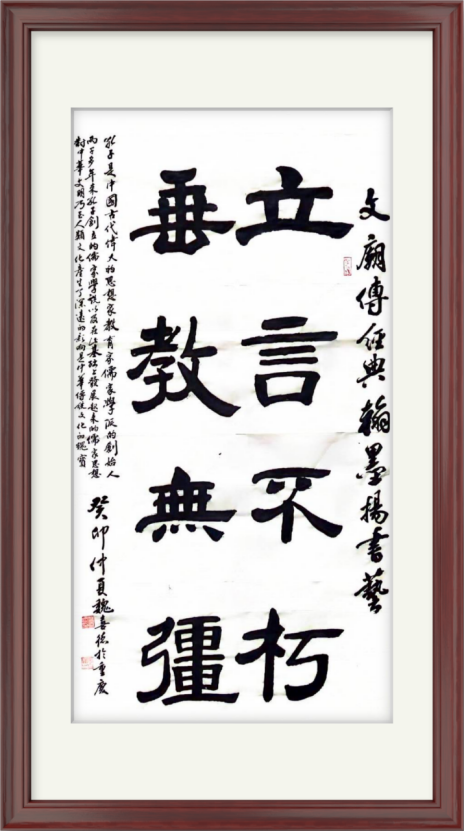 文廟傳經典翰墨揚書藝
立言不朽
垂教無疆
孔子是中國古代偉大的思想家教育家儒家學派的創始人
兩千多年來孔子創立的儒家學說以及在此基礎上發展起來的儒家思想
對中華文明乃至人類文化產生了深遠的影響是中華傳統文化的瑰寶
癸卯仲夏魏喜德於重慶